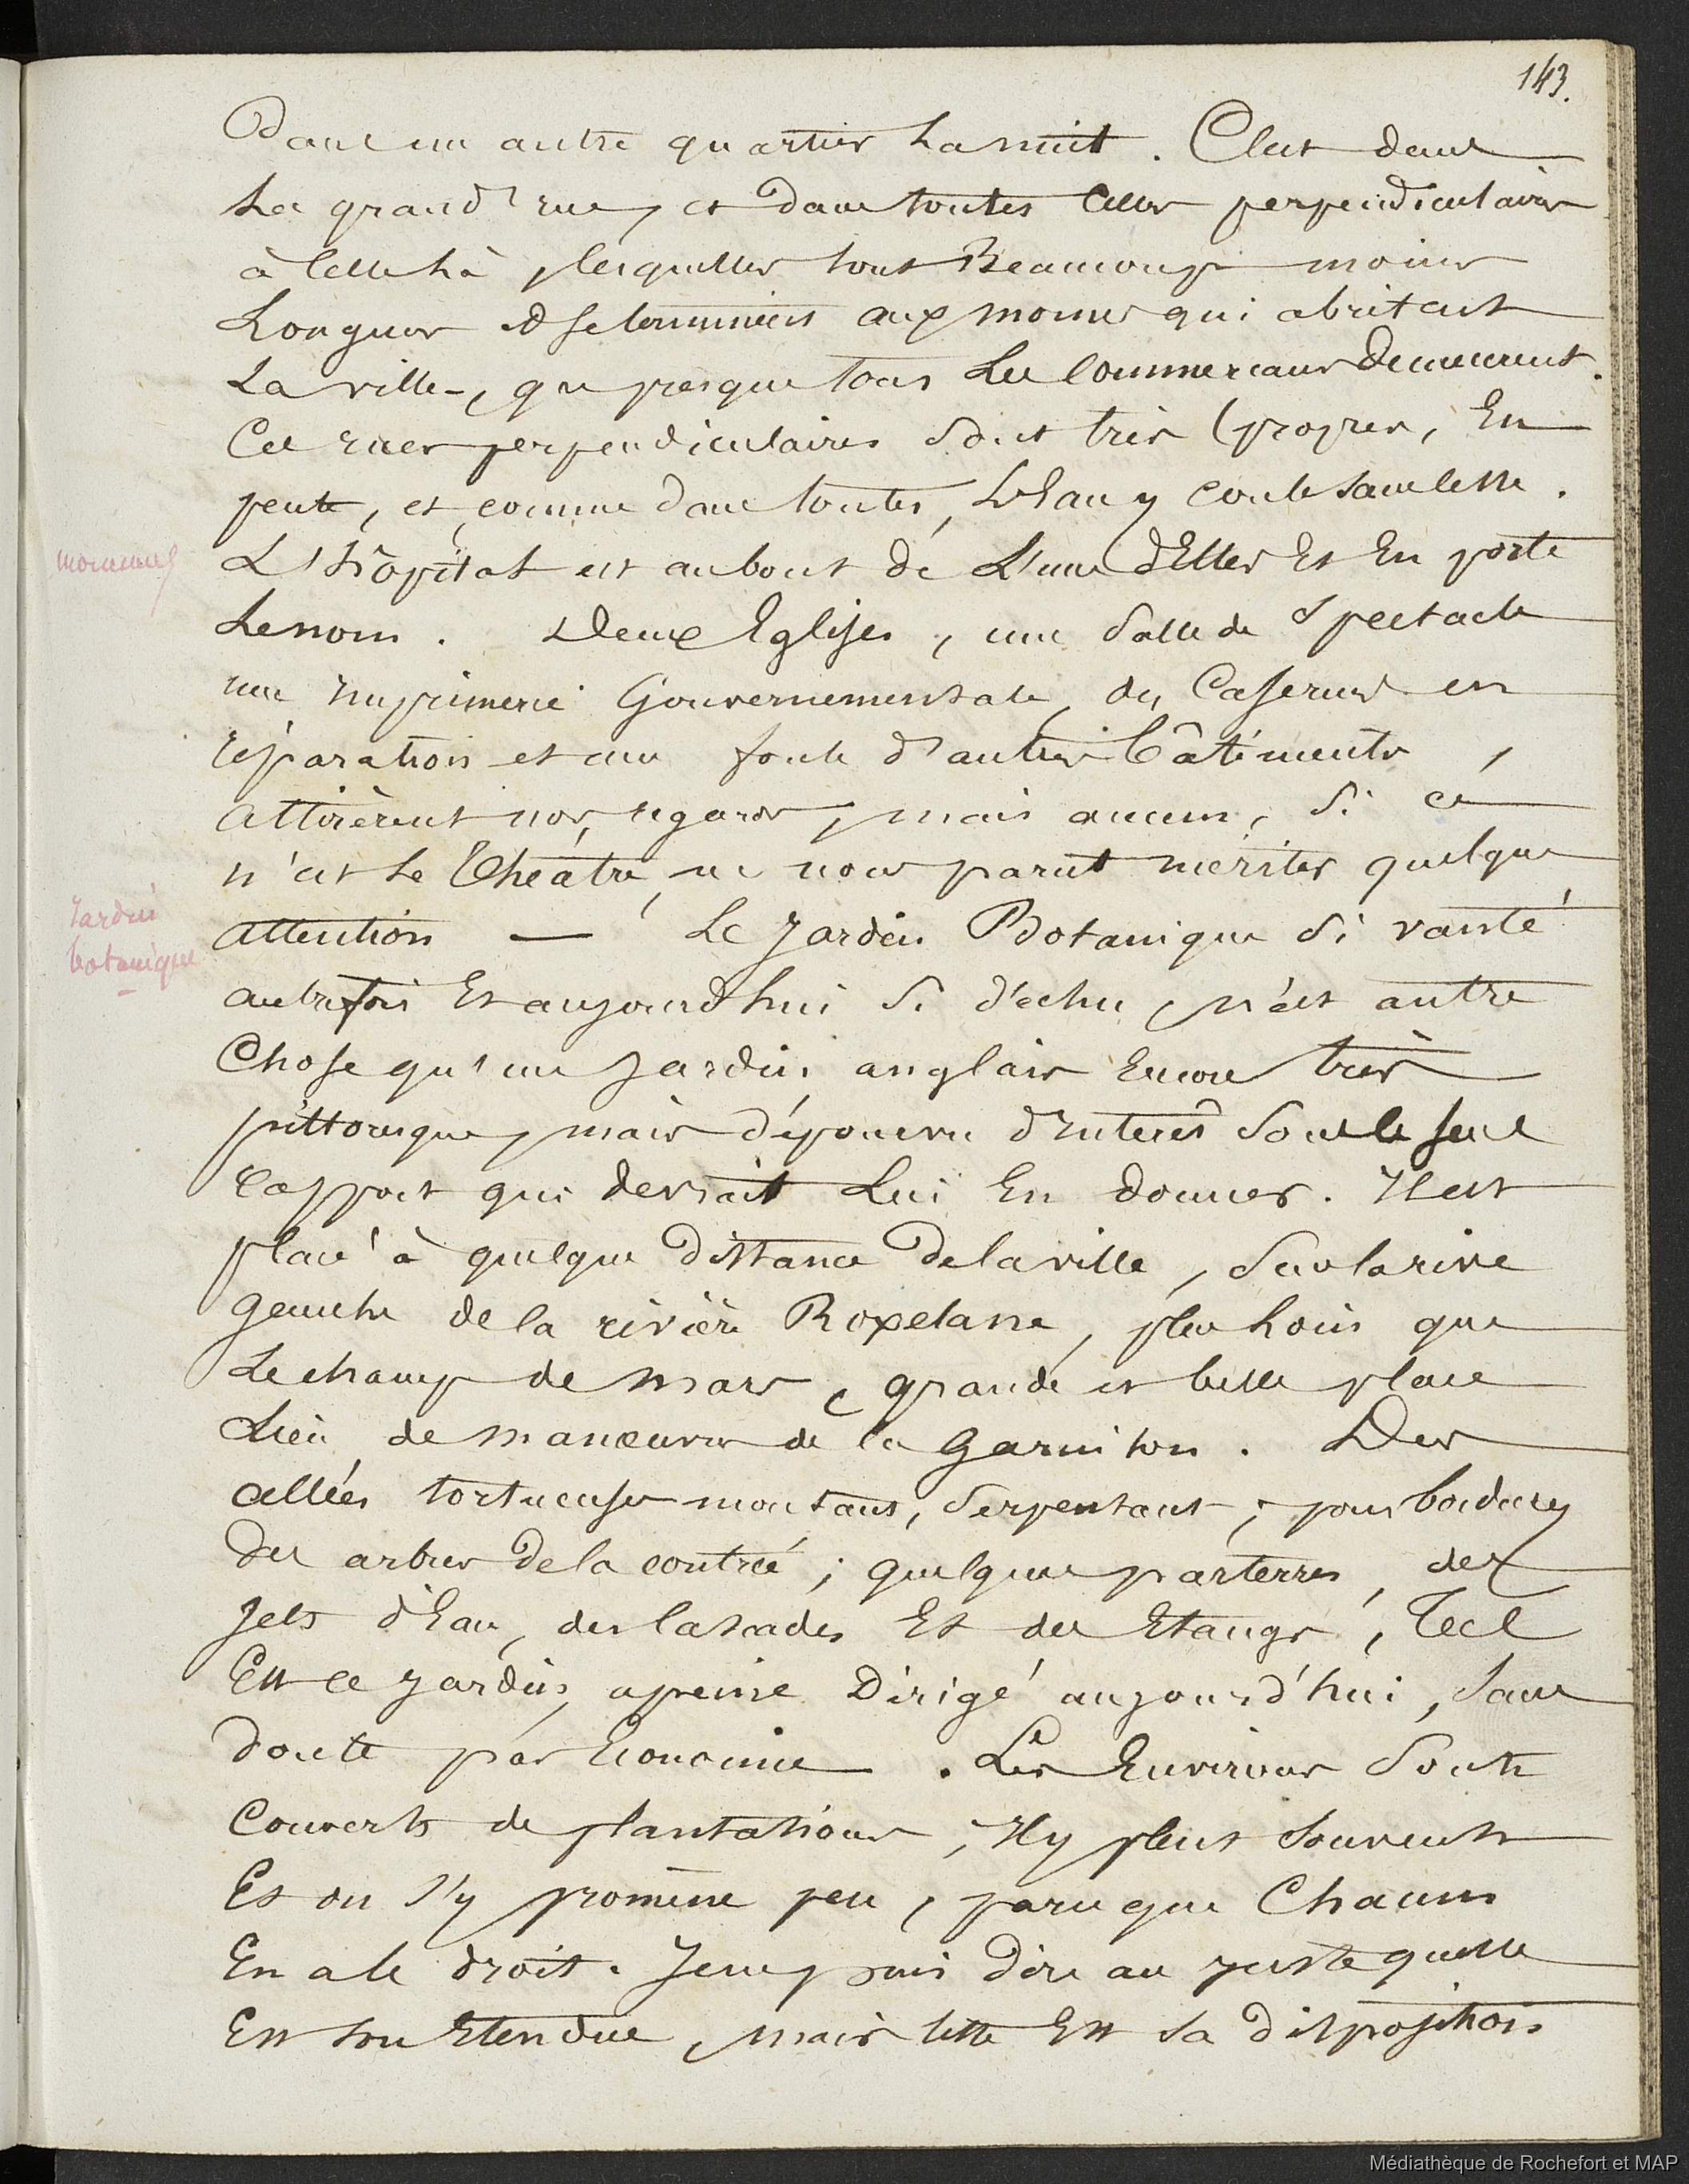 143.
Dans un autre quartier la nuit. C'est dans
La grand'rue, et dans toutes celles perpendiculaires
à celle là, lesquelles sont Beaucoup moins
Longues et se terminent aux mornes qui abritent
La ville, que presque tous Les commercans Demeurent.
Ces rues perpendiculaires sont très propres, En
pente, et comme dans toutes, L'Eau y coule sans cesse.
monument
L'hôpital est au bout de L'une d'Elles Et En porte
Le nom. Deux Eglises, une Salle de Spectacle
une Imprimerie Gouvernementale, des Casernes en
réparation et une foule d'autres bâtiments,
attirèrent nos regards, mais aucun, si ce
n'est Le Théâtre, ne nous parut mériter quelque
Jardin
botanique
attention — Le Jardin Botanique si vanté
autrefois Et aujourd'hui si déchu, n'est autre
Chose qu'un Jardin anglais Encore très
pittoresque, mais dépourvu d'Interêt Sous le seul
rapport qui devrait Lui En donner. Il est
placé à quelque Distance De la ville, Sur la rive
gauche de la rivière Roxelane, plus loin que
Le champ de mars, grande et belle place
Lieu de manœuvres de la garnison. Des
allées tortueuses montant, Serpentant, pour bordures
Des arbres De la contrée; quelques parterres, des
Jets d'Eau, des Cascades Et des Etangs, Tel
Est ce Jardin, apeine Dirigé aujourd'hui, Sans
Doute par Economie. Les Environs Sont
Couverts de plantations, Il y pleut Souvent
Et on s'y promène peu, parce que Chacun
En a le droit. Je ne puis Dire au juste quelle
Est son Etendue, mais telle Est sa Disposition